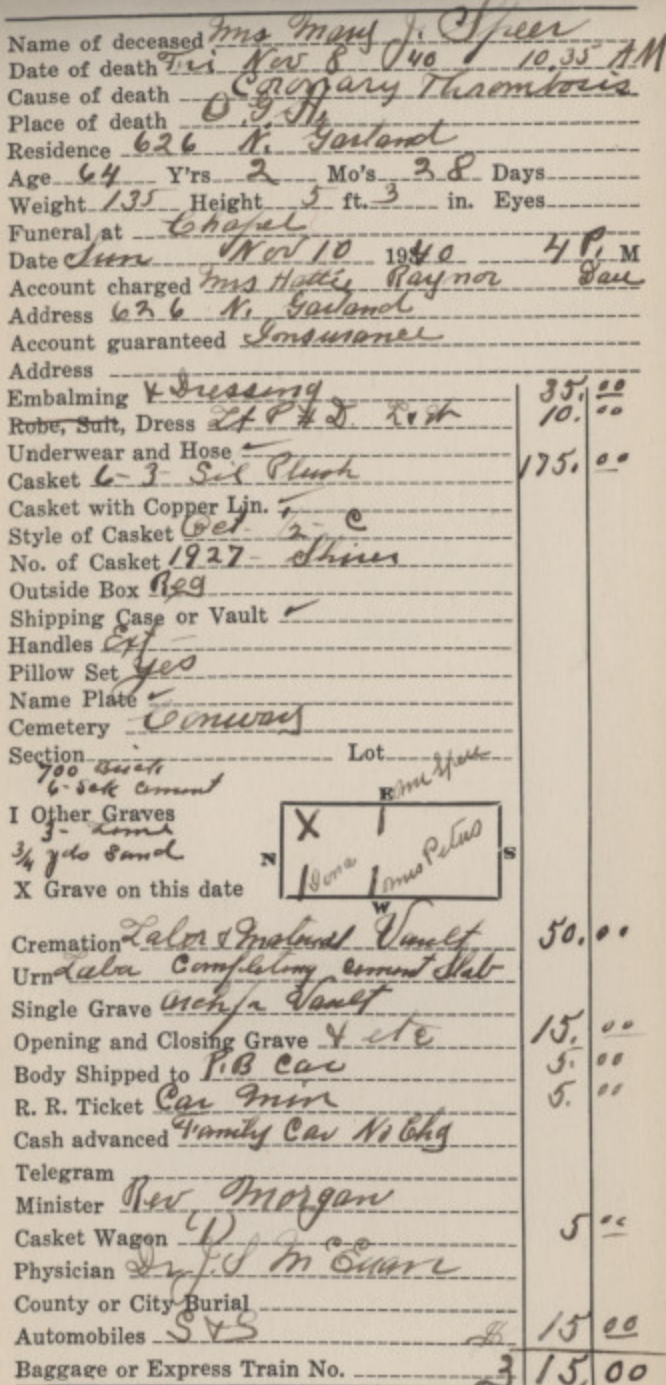 Name of deceased Mrs Mary J. Speer
Date of death Fri Nov 8 '40 10.35 AM
Cause of death Coronary Thrombosis
Place of death O.G.H.
Residence 626 N. Garland
Age 64 Y'rs 2 Mo's 28 Days
Weight 135 Height 5 ft. 3 in. Eyes
Funeral at Chapel
Date Sun Nov 10 1940 4 P. M
Account charged Mrs Hattie Raynor Dau
Address 626 N. Garland
Account guaranteed Insurance
Address
Embalming & Dressing 35.00
Robe, Suit, Dress Lt P # D. 10.00
Underwear and Hose
Casket 6-3 Sil Plush 175.00
Casket with Copper Lin.
Style of Casket Oct 1/2 - C
No. of Casket 1927 -
Outside Box Reg
Shipping Case or Vault ✓
Handles Ext
Pillow Set Yes
Name Plate ✓
Cemetery Conway
Section Lot
700 Brick
6- Sak cement
E Speer
I Other Graves
3- Lime
3/4 yds Sand
N X S
Dona Petus
X Grave on this date
W
Cremation Labor & Material Vault 50.00
Urn Labor Completing cement Slab
Single Grave Vault
Opening and Closing Grave & etc 15.00
Body Shipped to P.B Car 5.00
R. R. Ticket Car Min 5.00
Cash advanced Family Car No Chg
Telegram
Minister Rev. Morgan
Casket Wagon (1) 5 00
Physician Dr J.S McEwan
County or City Burial
Automobiles S & S 15 00
Baggage or Express Train No. 315 00